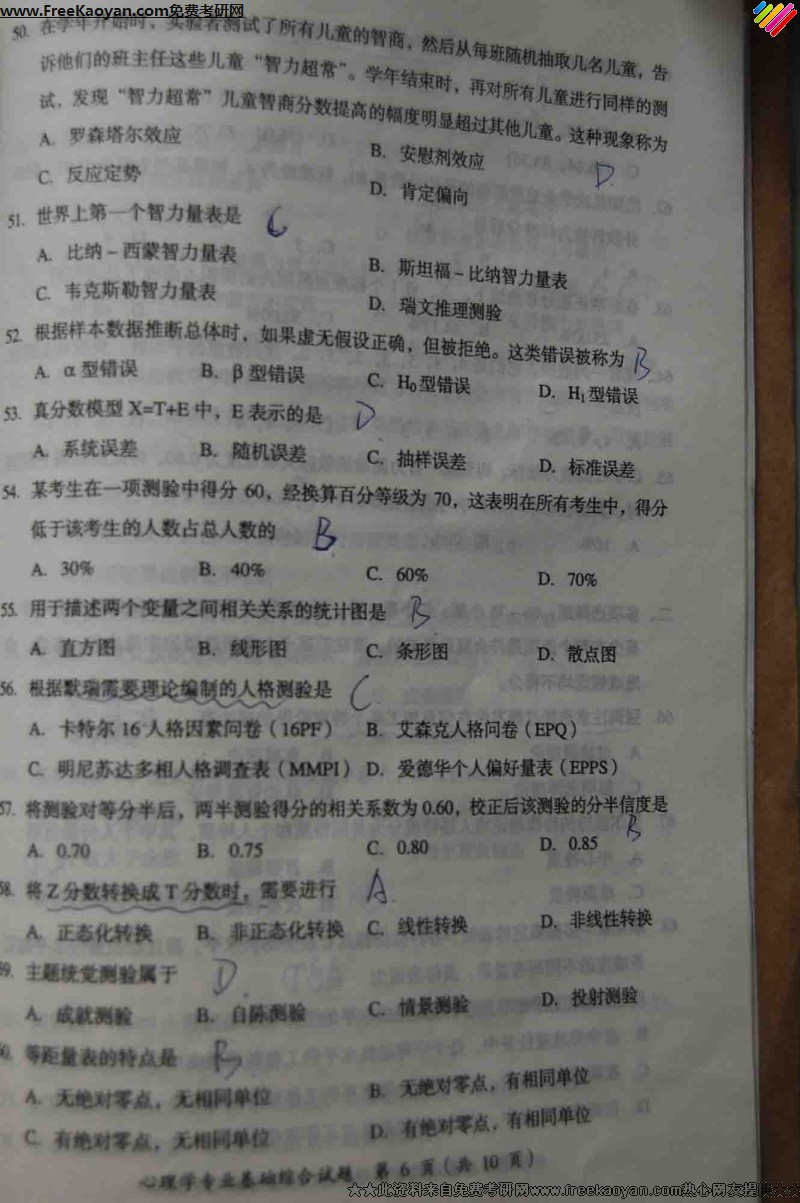 www.FreeKaoyan.com免费考研网
50. 在学年开始时，实验者测试了所有儿童的智商，然后从每班随机抽取几名儿童，告
诉他们的班主任这些儿童“智力超常”。学年结束时，再对所有儿童进行同样的测
试，发现“智力超常”儿童智商分数提高的幅度明显超过其他儿童。这种现象称为
A. 罗森塔尔效应 B. 安慰剂效应
C. 反应定势 D. 肯定偏向 D
51. 世界上第一个智力量表是 C
A. 比纳－西蒙智力量表 B. 斯坦福－比纳智力量表
C. 韦克斯勒智力量表 D. 瑞文推理测验
52. 根据样本数据推断总体时，如果虚无假设正确，但被拒绝。这类错误被称为 B
A. α型错误 B. β型错误 C. H₀型错误 D. H₁型错误
53. 真分数模型 X=T+E 中，E 表示的是 D
A. 系统误差 B. 随机误差 C. 抽样误差 D. 标准误差
54. 某考生在一项测验中得分 60，经换算百分等级为 70，这表明在所有考生中，得分
低于该考生的人数占总人数的 B
A. 30% B. 40% C. 60% D. 70%
55. 用于描述两个变量之间相关关系的统计图是 B
A. 直方图 B. 线形图 C. 条形图 D. 散点图
56. 根据默瑞需要理论编制的人格测验是 C
A. 卡特尔 16 人格因素问卷（16PF） B. 艾森克人格问卷（EPQ）
C. 明尼苏达多相人格调查表（MMPI） D. 爱德华个人偏好量表（EPPS）
57. 将测验对等分半后，两半测验得分的相关系数为 0.60，校正后该测验的分半信度是
A. 0.70 B. 0.75 C. 0.80 D. 0.85 B
58. 将 Z 分数转换成 T 分数时，需要进行 A
A. 正态化转换 B. 非正态化转换 C. 线性转换 D. 非线性转换
59. 主题统觉测验属于 D
A. 成就测验 B. 自陈测验 C. 情景测验 D. 投射测验
60. 等距量表的特点是 B
A. 无绝对零点，无相同单位 B. 无绝对零点，有相同单位
C. 有绝对零点，无相同单位 D. 有绝对零点，有相同单位
心理学专业基础综合试题 第 6 页（共 10 页）
★☆此资料来自免费考研网www.freekaoyan.com热心网友提供